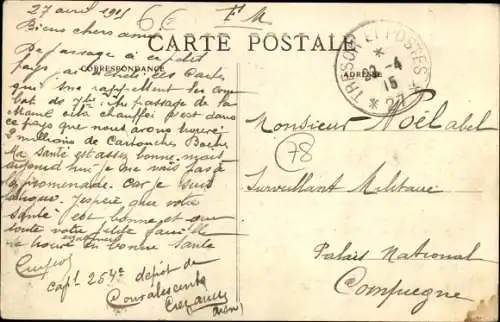 27 avril 1915
66
F M
Biens chers amis
CARTE POSTALE
De passage à ce petit
CORRESPONDANCE
ADRESSE
pays cartes
qui me rappellent les com
bat de passage de la
c'est dans
ce pays que nous avons trouvé
2 millions de Cartouches Boche
Ma santé est assez bonne mais
aujourd hui je ne vais pas à
la promenade. Car je suis
fatigué. J'espère que votre
santé est bonne et que
toute votre petite famille
se trouve en bonne santé
Capl 254e dépôt de
Convalescents
Crezancy
Aisne
TRESOR ET POSTES
22 -4
15
Monsieur Noël abel
78
Surveillant Militaire
Palais National
Compiegne